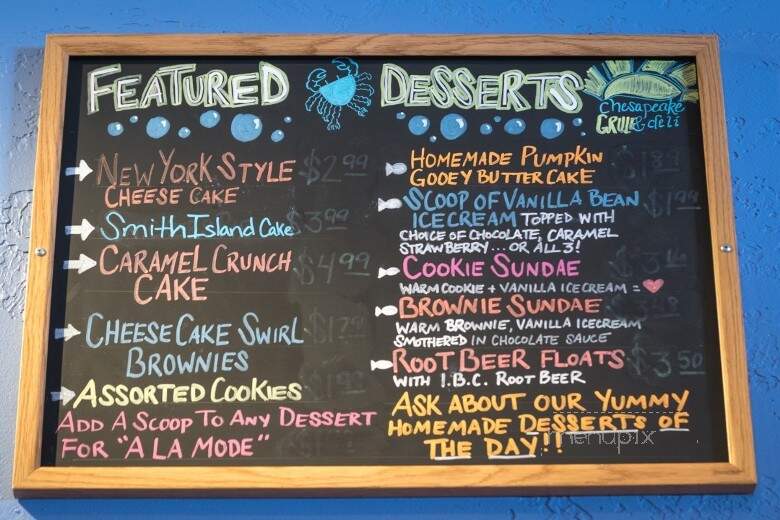 FEATURED DESSERTS
Chesapeake
GRILLE & deli
NEW YORK STYLE $2.99
CHEESE CAKE
Smith Island Cake $3.99
CARAMEL CRUNCH $4.99
CAKE
CHEESE CAKE SWIRL
BROWNIES
ASSORTED COOKIES
ADD A SCOOP TO ANY DESSERT
FOR "A LA MODE"
HOMEMADE PUMPKIN
GOOEY BUTTER CAKE
SCOOP OF VANILLA BEAN $1.99
ICE CREAM TOPPED WITH
CHOICE OF CHOCOLATE, CARAMEL
STRAWBERRY... OR ALL 3!
COOKIE SUNDAE
WARM COOKIE + VANILLA ICE CREAM =
BROWNIE SUNDAE
WARM BROWNIE, VANILLA ICE CREAM
SMOTHERED IN CHOCOLATE SAUCE
ROOT BEER FLOATS $3.50
WITH I.B.C. ROOT BEER
ASK ABOUT OUR YUMMY
HOMEMADE DESSERTS OF
THE DAY!!
menupix